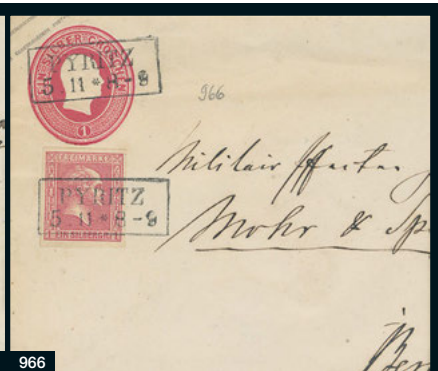 EIN SILBER GROSCHEN
1
PYRITZ
5 11 * 8-9
966
FREIMARKE
PYRITZ
5.11 * 8-9
EIN SILBERGR.
Militair Effecten
Mohr & Sp
Ber
966